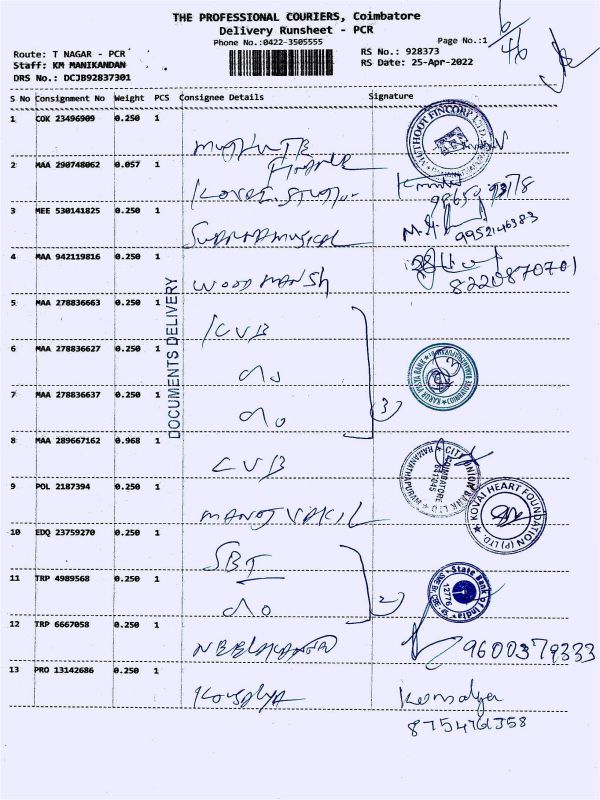 THE PROFESSIONAL COURIERS, Coimbatore
Delivery Runsheet - PCR
Phone No.:0422-3505555
Page No.:1
6/46
Route: T NAGAR - PCR
RS No.: 928373
Staff: KM MANIKANDAN
RS Date: 25-Apr-2022
DRS No.: DCJB92837301
S No Consignment No Weight PCS Consignee Details Signature
1 COK 23496909 0.250 1
MUTHOOT FINCORP LTD
Finance
2 MAA 290748062 0.057 1
3 MEE 530141825 0.250 1
9952146383
4 MAA 942119816 0.250 1
8220870701
5 MAA 278836663 0.250 1 KVB
6 MAA 278836627 0.250 1 do
7 MAA 278836637 0.250 1 do
3
DOCUMENTS DELIVERY
8 MAA 289667162 0.968 1 CUB
CITY UNION BANK LTD
COIMBATORE
641045
RAMANATHAPURAM
9 POL 2187394 0.250 1
KOVAI HEART FOUNDATION (P) LTD.
10 EDQ 23759270 0.250 1 SBI
11 TRP 4989568 0.250 1 do
2
State Bank of India
12 TRP 6667058 0.250 1
9600379333
13 PRO 13142686 0.250 1 Kousalya
Kousalya